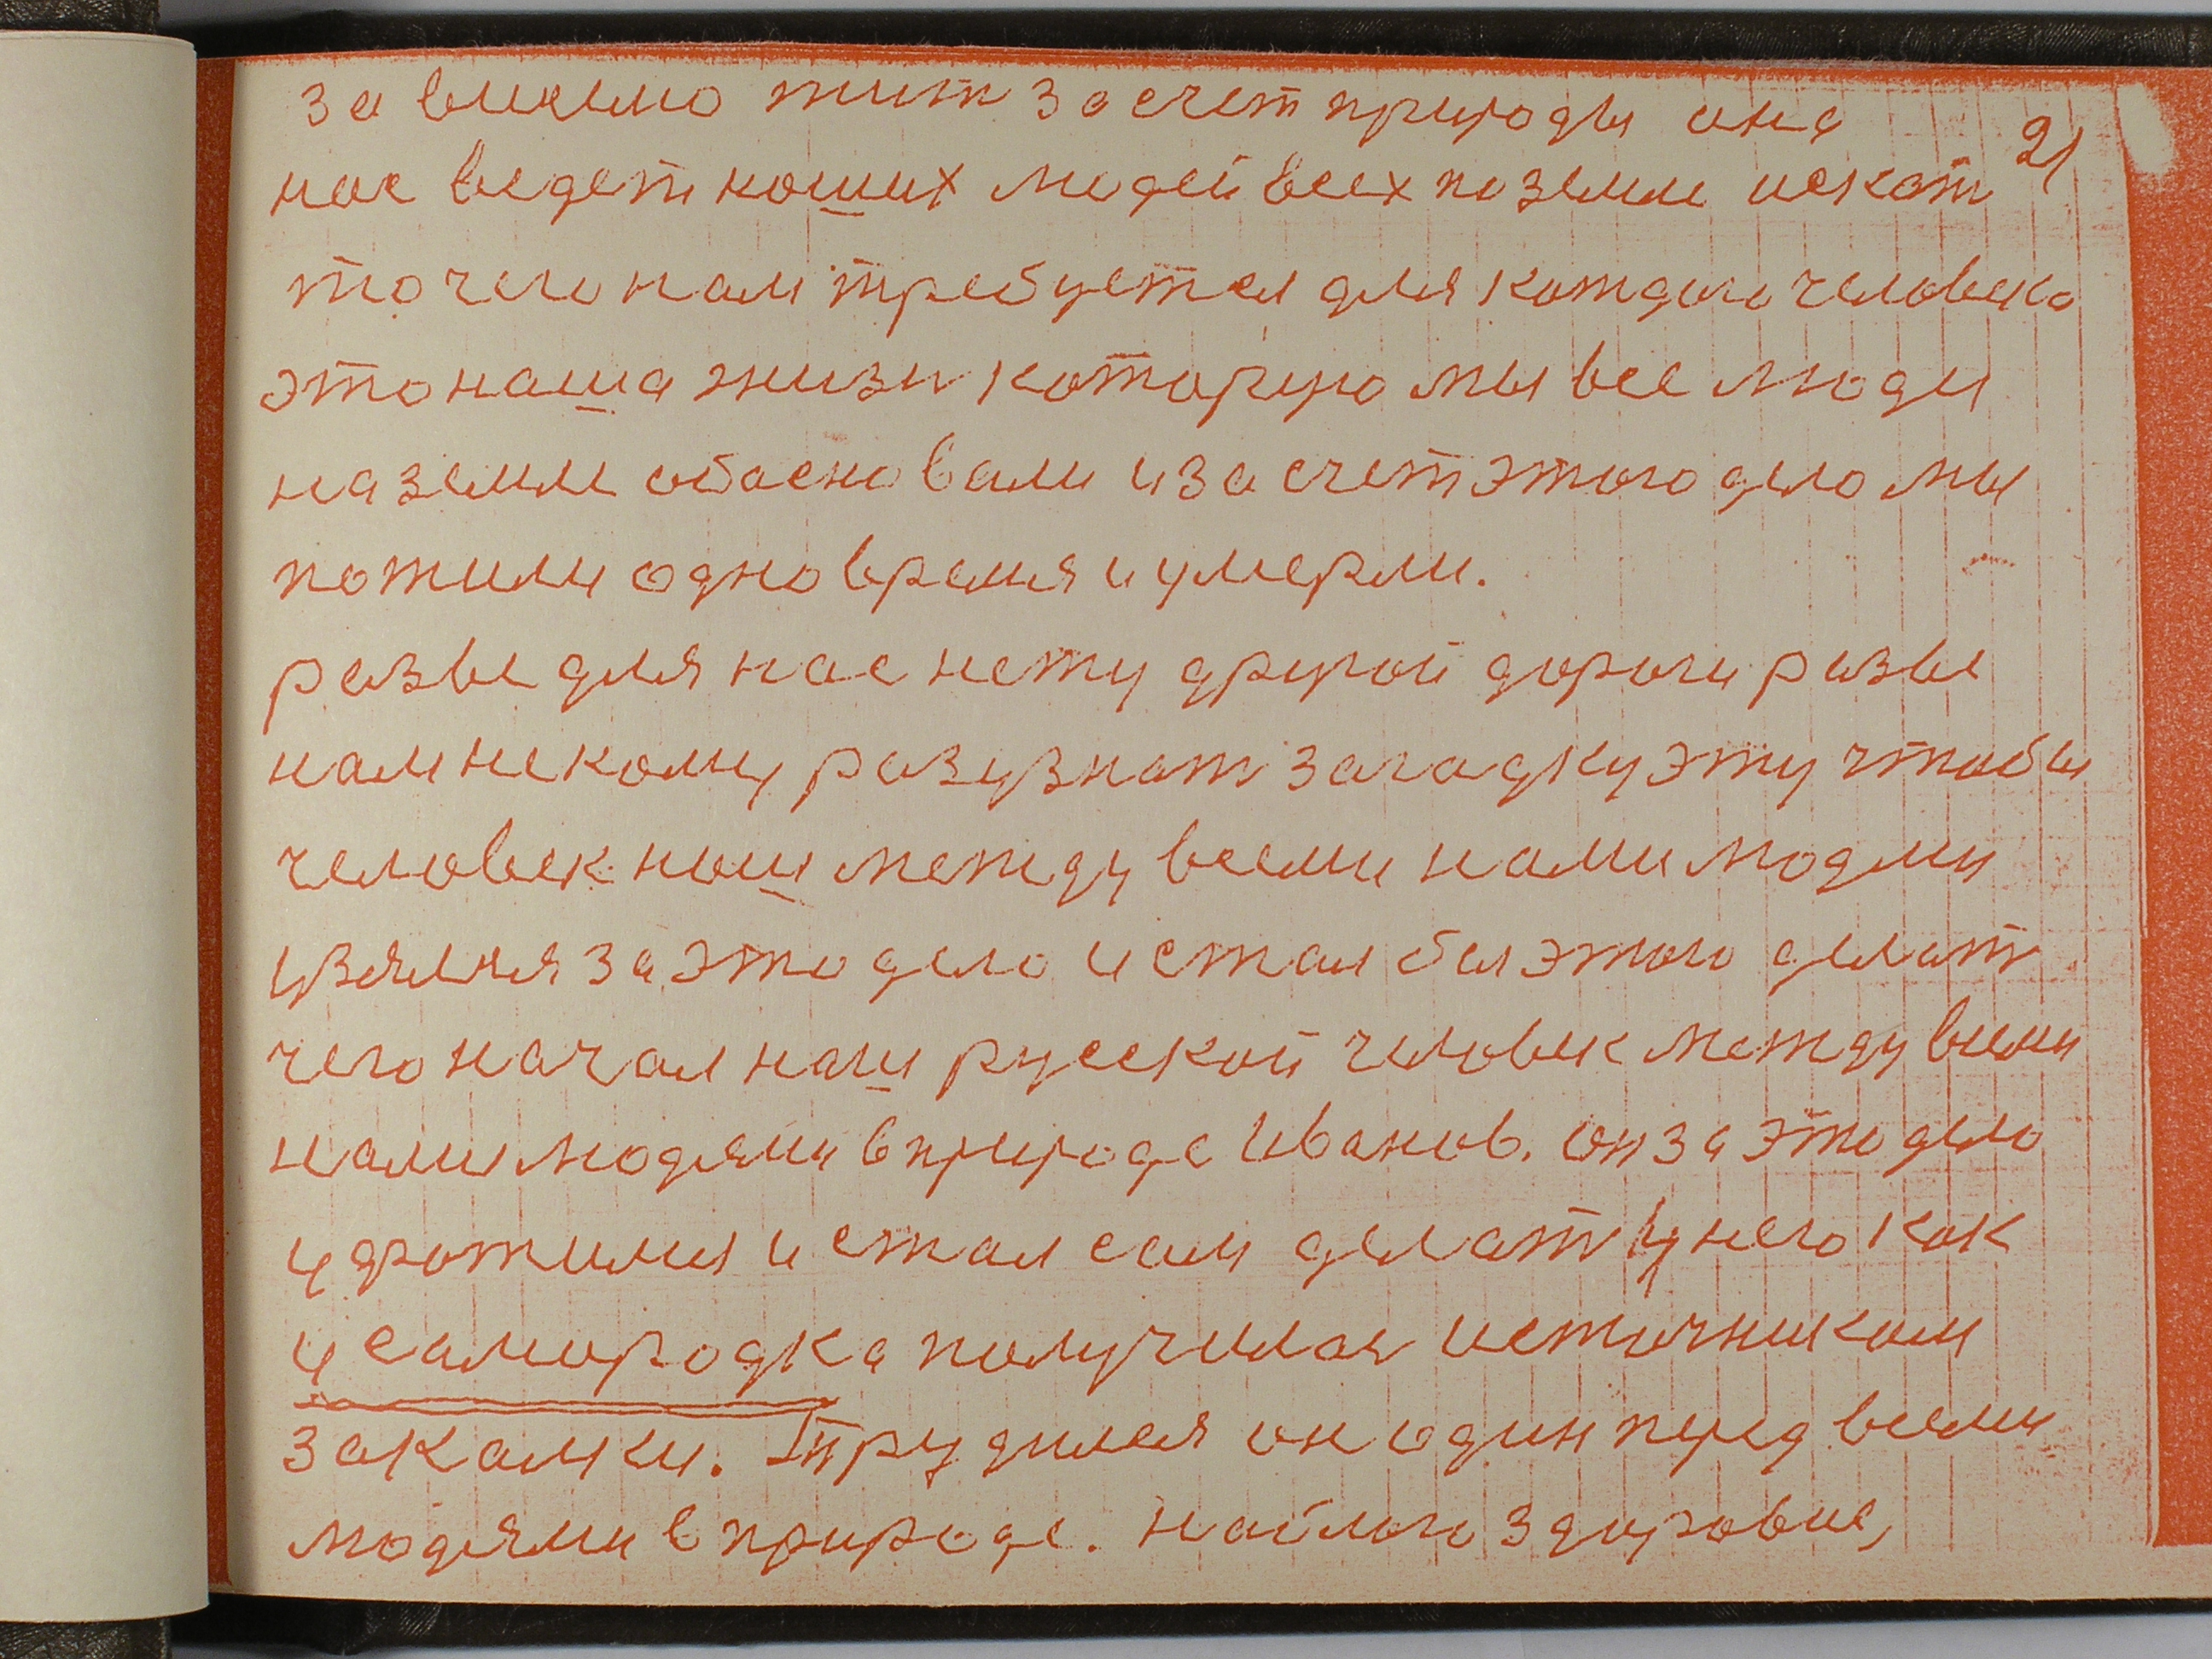 за висимо жит за счет природы она
2)
нас ведет наших людей всех по земле искат
то чего нам требуется для каждого человека
это наша жизн которую мы все люди
на земле обасновали и за счет этого дело мы
пожили одно время и умерли.
разве для нас нету другой дороги разве
нам некому разузнат загадку эту чтобы
человек наш между всеми нами людми
узялся за это дело и стал бы этого делат
чего начал наш русской человек между всеми
нами людями в природе Иванов. он за это дело
удражился и стал сам делат у него как
у самородка получился источником
закалки. Трудился он один перед всеми
людями в природе. на благо здоровие,